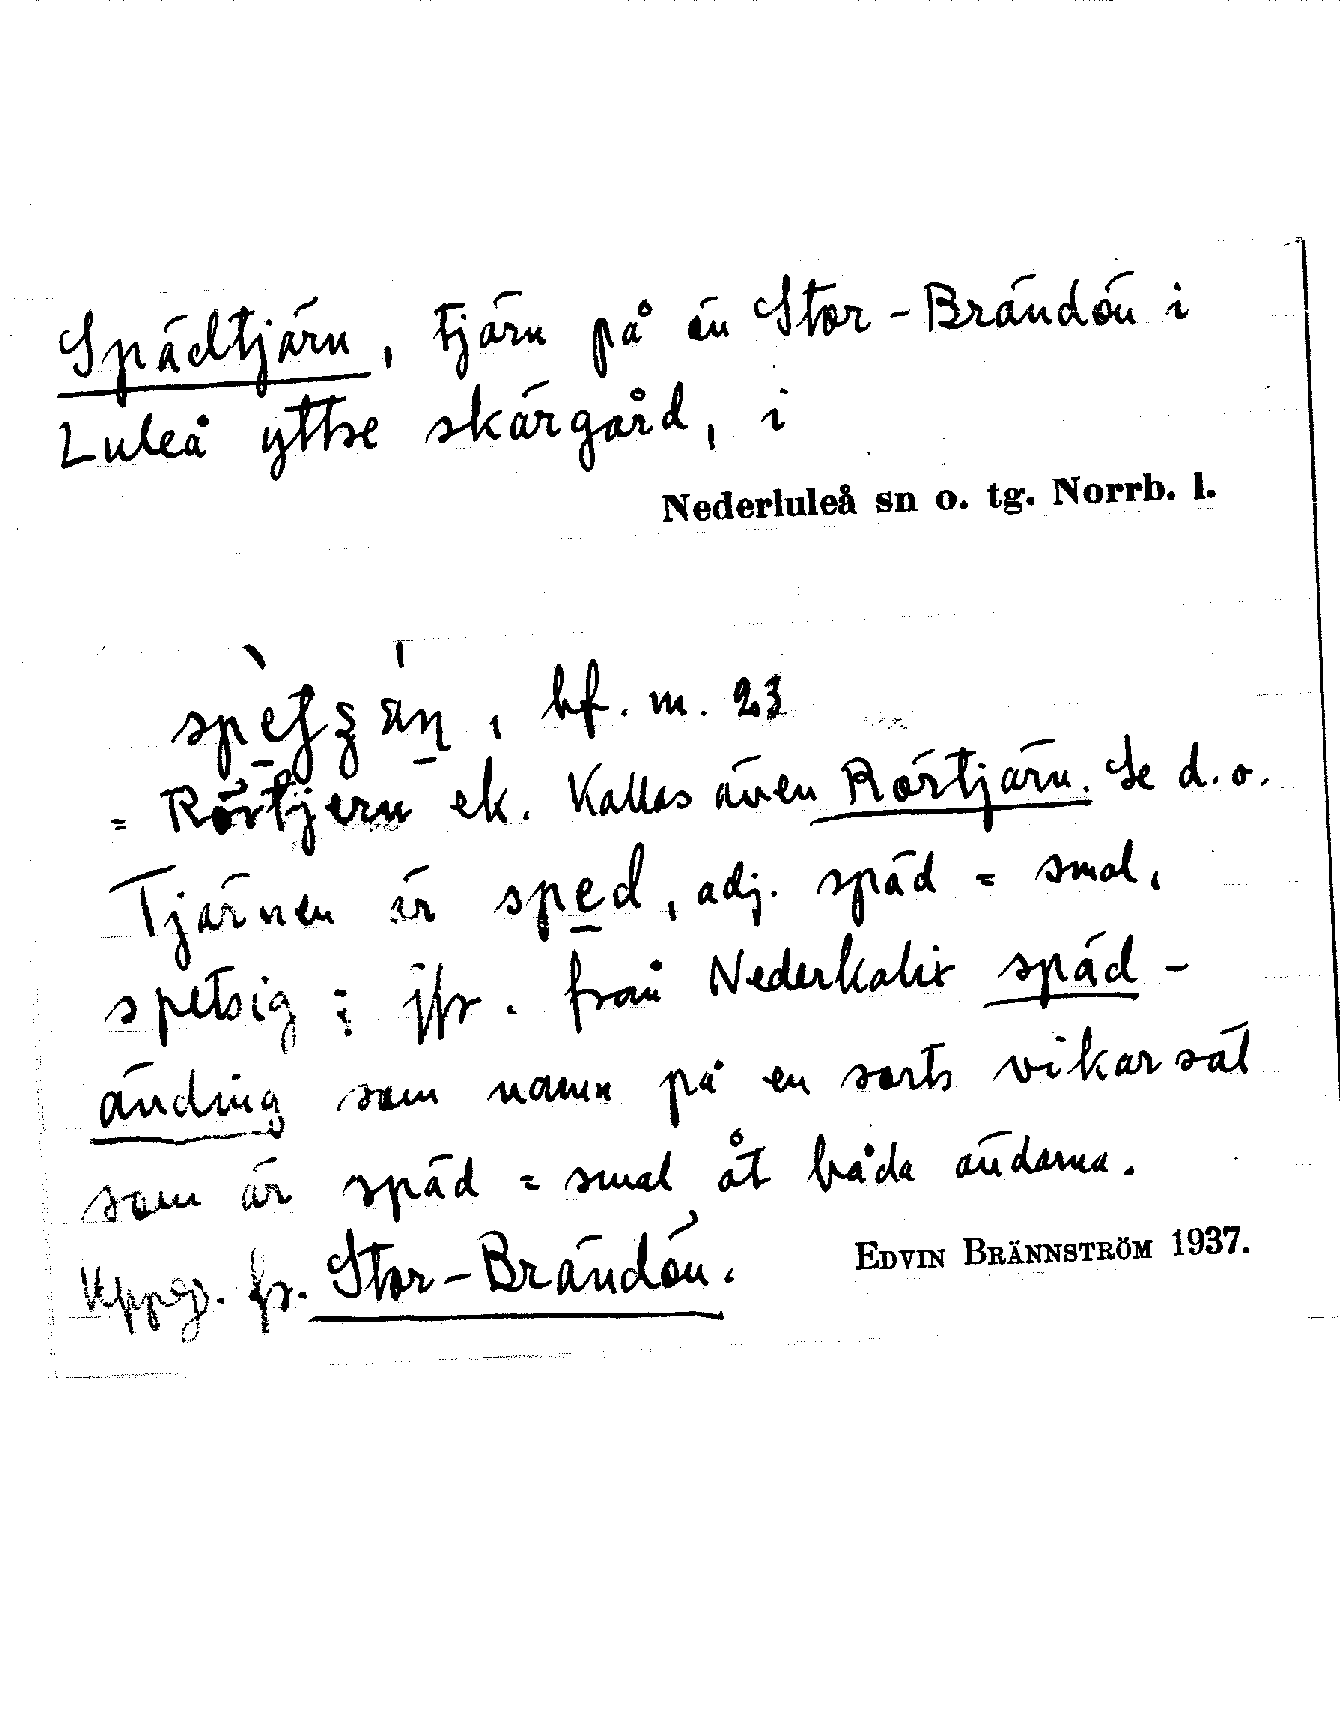 Spädtjärn, tjärn på ön Stor-Brändön i
Luleå yttre skärgård, i
Nederluleå sn o. tg. Norrb. l.
bf. m. 23
= Rörtjern ek. Kallas även Rörtjärn. Se d. o.
Tjärnen är sped, adj. späd = smal,
spetsig; jfr. från Nederkalix späd-
änding som namn på en sorts vikarsäl
som är späd = smal åt båda ändarna.
Uppg. fr. Stor-Brändön.
EDVIN BRÄNNSTRÖM 1937.